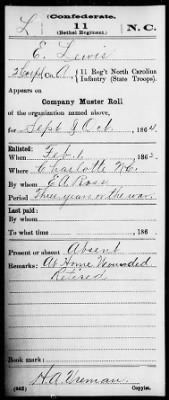 (Confederate.)
L 11 N.C.
(Bethel Regiment.)
E. Lewis
Co. A, 11 Reg't North Carolina
Infantry (State Troops).
Appears on
Company Muster Roll
of the organization named above,
for Sept & Oct, 1864.
Enlisted:
When Feb. 1, 186
Where Charlotte N.C.
By whom E A Ross
Period Three years or the war.
Last paid:
By whom
To what time , 186
Present or absent Absent
Remarks: At Home Wounded
Retired
Book mark:
(642) H. A. Copyist.